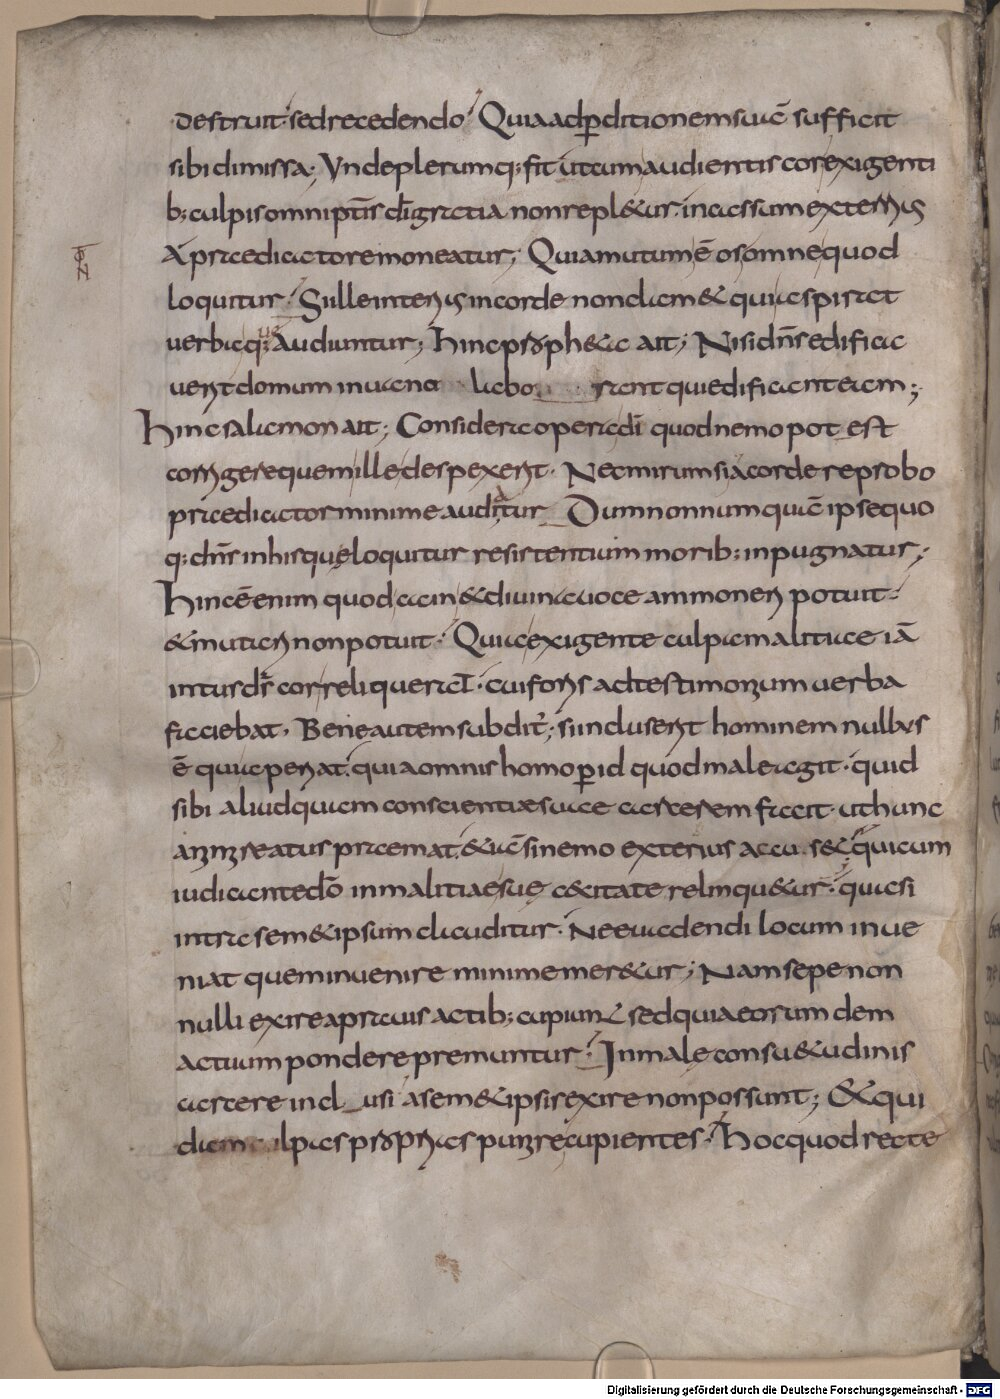 destruit sed recedendo Quia ad p̱ditionem suā sufficit
sibi dimissa; Unde plerumq; fit ut cum audientis cor exigenti
b; culpis omniptīs dī gratia non repl&ur. incassum exterius
A praedicatore moneatur; Quia mutum ē os omne quod
loquitur. Si ille interius in corde non clam& qui aspirat
verba q; Audiuntur; Hinc proph&a ait; Nisi dns edifica
verit domum in vano labo rant qui edificant eam;
Hinc salamon ait; Considera opera dī quod nemo pot est
corrigere quem ille despexerit. Nec mirum si a corde reprobo
praedicator minime auditur Dum nonnumquā ipse quo
q; dns in his que loquitur resistentium morib; inpugnatur;
Hinc ē enim quod cain & divina voce ammoneri potuit
& mutari non potuit. Quia exigente culpa malitiae iā
intus ds cor reliquerat. cui foris ad testimonium verba
faciebat. Bene autem subdit; si incluserit hominem nullus
ē qui aperiat. quia omnis homo p̱ id quod male agit. quid
sibi aliud quam conscientiae suae carcerem facit. ut hunc
animi reatus praemat. & iā si nemo exterius accu s& qui cum
iudicante dō in malitiae sue c&citate relinqu&ur. quasi
intra sem&ipsum clauditur. Ne evadendi locum inve
niat quem invenire minime mer&ur; Nam sepe non
nulli exire a pravis actib; cupiunt sed quia eorum dem
actuum pondere premuntur. In male consu&udinis
carcere incl usi a sem&ipsis exire non possunt; & qui
dam culpas proprias punire cupientes. Hoc quod recte